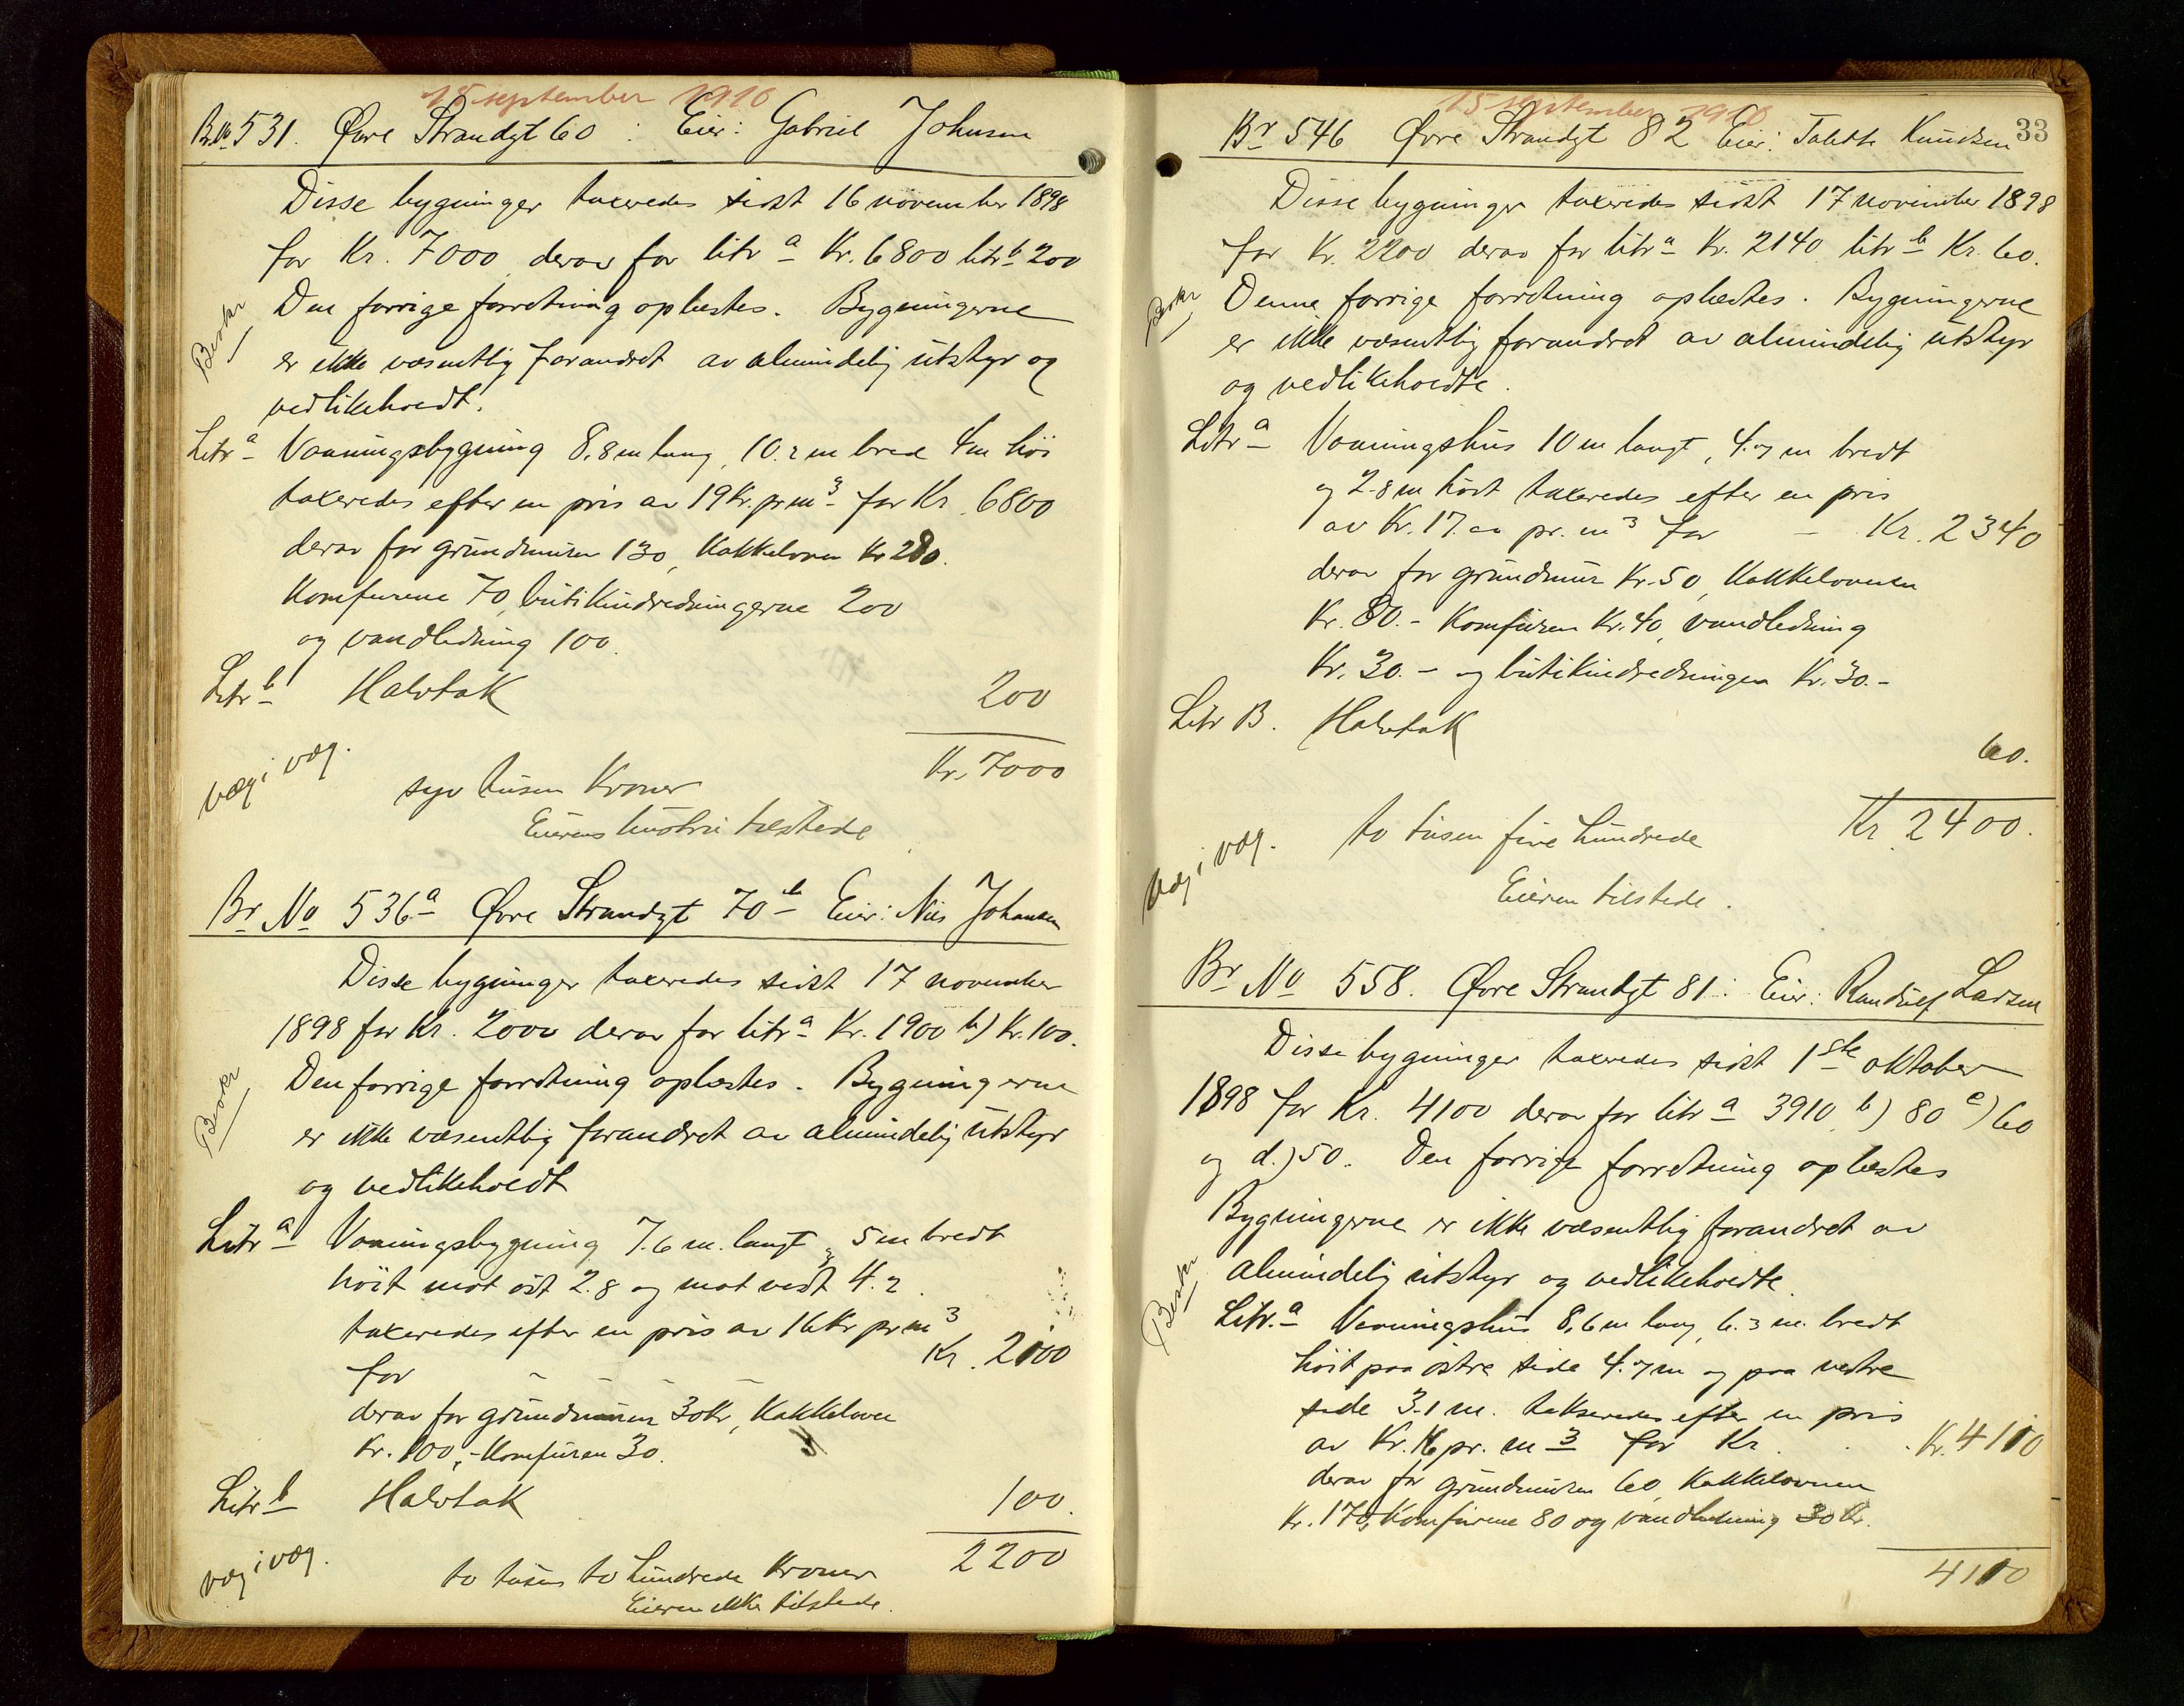 15 september 1910
Br.No 531. Øvre Strandgt 60 : Eier: Gabriel Johnsen
Disse bygninger taxeredes sidst 16 november 1898
for Kr. 7000 derav for litr a Kr. 6800 litr b 200
Beskr
Den forrige forretning oplæstes. Bygningerne
er ikke væsentlig forandret av almindelig utstyr og
vedlikeholdt.
Litr a Vaaningsbygning 8,8 m lang, 10.2 m bred 4 m høi
taxeredes efter en pris av 19 Kr. pr m3 for Kr. 6800
derav for grundmuren 130, Kakkelovne Kr 280.
Komfurene 70, butikindredningerne 200
og vandledning 100.
Litr b Halvtak 200
Kr. 7000
væg i væg.
syv tusen Kroner
Eierens hustru tilstede
Br No 536 a Øvre Strandgt 70 b Eier: Nils Johansen
Disse bygninger taxeredes sidst 17 november
1898 for Kr. 2000 derav for litr a Kr. 1900 b) Kr. 100.
Beskr
Den forrige forretning oplæstes. Bygningerne
er ikke væsentlig forandret av almindelig utstyr
og vedlikeholdt
Litr a Vaaningsbygning 7.6 m. langt, 5 m bredt
høit mot øst 2.8 og mot vest 4.2.
taxeredes efter en pris av 16 Kr pr m3
for - - - Kr. 2100
derav for grundmuren 30 Kr, Kakkelovne
Kr. 100,- Komfuren 30.
Litr b Halvtak 100.
2200
væg i væg.
to tusen to hundrede Kroner
Eieren ikke tilstede.
33
15 september 1910
Br 546 Øvre Strandgt 82 Eier: Knudsen
Disse bygninger taxeredes sidst 17 november 1898
for Kr. 2200 derav for litr a Kr. 2140 litr b Kr. 60.
Beskr
Denne forrige forretning oplæstes. Bygningerne
er ikke væsentlig forandret av almindelig utstyr
og vedlikeholdte.
Litr a Vaaningshus 10 m langt, 4.7 m bredt
og 2.8 m høit taxeredes efter en pris
av Kr. 17.00 pr. m3 for - Kr. 2340
derav for grundmur Kr. 50, Kakkelovnen
Kr. 80.- Komfuren Kr. 40, vandledning
Kr. 30.- og butikindredningen Kr. 30.-
Litr B. Halvtak
60.
Kr. 2400.
væg i væg.
to tusen fire hundrede
Eieren tilstede.
Br No 558. Øvre Strandgt 81: Eier: Randulf Larsen
Disse bygninger taxeredes sidst 1ste oktober
1898 for Kr. 4100 derav for litr a 3910, b) 80 c) 60
og d.) 50. Den forrige forretning oplæstes
Bygningerne er ikke væsentlig forandret av
Beskr
almindelig utstyr og vedlikeholdte.
Litr. a Vaaningshus 8,6 m lang, 6.3 m. bredt
høit paa østre side 4.7 m og paa vestre
side 3.1 m. takseredes efter en pris
av Kr. 16 pr. m3 for Kr. . . Kr. 4110
derav for grundmuren 60, Kakkelovnene
Kr. 170, Komfurene 80 og vandledning 30 Kr.
4110